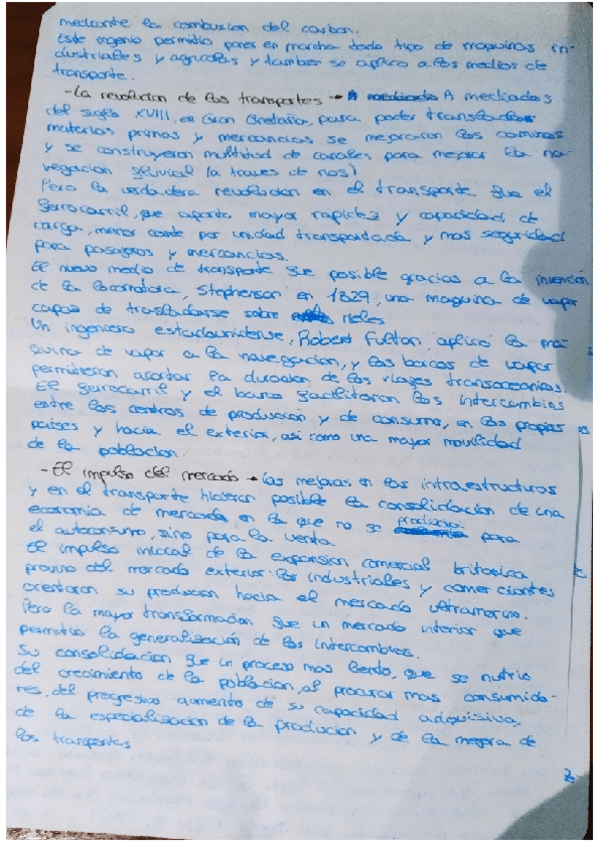 mediante la combustion del carbon.
Este ingenio permitio poner en marcha todo tipo de maquinas in-
dustriales y agricolas y tambien se aplico a los medios de
transporte.
- La revolucion de los transportes → A mediados
del siglo XVIII, en Gran Bretaña, para poder transladar
materias primas y mercancias se mejoraron los caminos
y se construyeron multitud de canales, para mejorar la na-
vegacion fluvial (a traves de rios)
Pero la verdadera revolucion en el transporte fue el
ferrocarril, que aporto mayor rapidez y capacidad de
carga, menor coste por unidad transportada y mas seguridad
para pasajeros y mercancias.
El nuevo medio de transporte fue posible gracias a la invención
de la locomotora, Stephenson en 1829, una maquina de vapor
capaz de trasladarse sobre rieles
Un ingeniero estadounidense, Robert Fulton, aplicó la má-
quina de vapor a la navegacion, y los barcos de vapor
permitieron acortar la duracion de los viajes transoceanicos.
El ferrocarril y el barco facilitaron los intercambios
entre los centros de producción y de consumo, en los propios
paises y hacia el exterior, asi como una mayor movilidad
de la poblacion.
- El impulso del mercado → Las mejoras en las infraestructuras
y en el transporte hicieron posible la consolidacion de una
economia de mercado, en la que no se producia para
el autoconsumo, sino para la venta
El impulso inicial de la expansion comercial britanica
provino del mercado exterior: los industriales y comerciantes
orientaron su produccion hacia el mercado ultramarino.
Pero la mayor transformacion fue un mercado interior que
permitio la generalización de los intercambios.
Su consolidacion fue un proceso mas lento, que se nutrio
del crecimiento de la poblacion, al procurar mas consumido-
res, del progresivo aumento de su capacidad adquisiva,
de la especializacion de la produccion y de la mejora de
los transportes
2